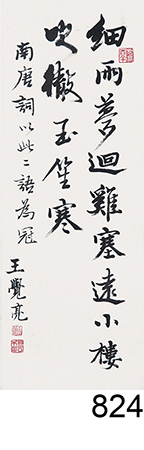 細雨夢迴雞塞遠小樓
吹徹玉笙寒
南唐詞以此二語為冠
王覺亮
824